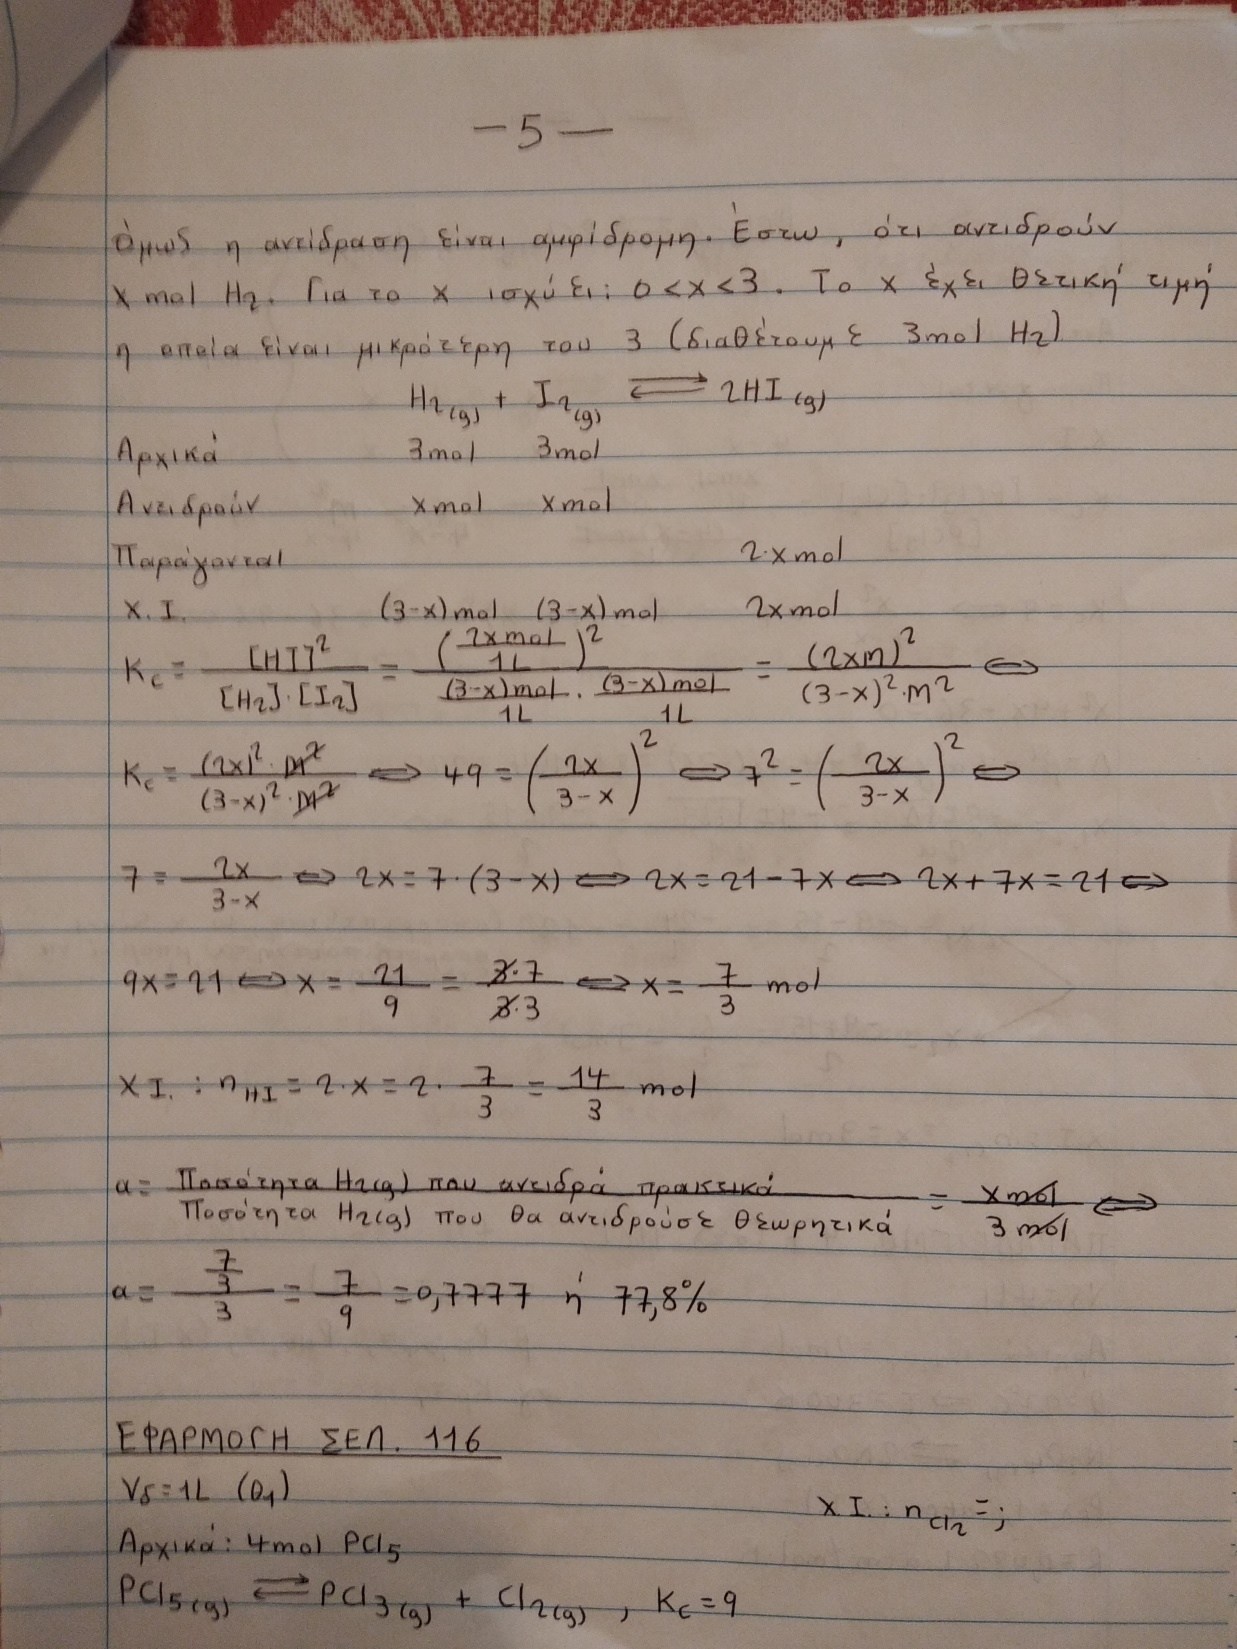 -5-
Όμως η αντίδραση είναι αμφίδρομη. Έστω, ότι αντιδρούν
x mol H₂. Για το x ισχύει: 0<x<3. Το x έχει θετική τιμή
η οποία είναι μικρότερη του 3 (διαθέτουμε 3mol H₂)
H₂(g) + I₂(g) ⇌ 2HI(g)
Αρχικά 3mol 3mol
Αντιδρούν xmol xmol
Παράγονται 2·xmol
Χ.Ι. (3-x)mol (3-x)mol 2xmol
Kc = [HI]²/([H₂]·[I₂]) = (2xmol/1L)²/((3-x)mol/1L · (3-x)mol/1L) = (2xM)²/((3-x)²·M²) ⇔
Kc = ((2x)²·M²)/((3-x)²·M²) ⇔ 49 = (2x/(3-x))² ⇔ 7² = (2x/(3-x))² ⇔
7 = 2x/(3-x) ⇔ 2x=7·(3-x) ⇔ 2x=21-7x ⇔ 2x+7x=21 ⇔
9x=21 ⇔ x= 21/9 = 3·7/3·3 ⇔ x= 7/3 mol
ΧΙ. : nHI = 2·x = 2· 7/3 = 14/3 mol
α= Ποσότητα H₂(g) που αντιδρά πρακτικά / Ποσότητα H₂(g) που θα αντιδρούσε θεωρητικά = xmol/3mol ⇔
α= (7/3)/3 = 7/9 =0,7777 ή 77,8%
ΕΦΑΡΜΟΓΗ ΣΕΛ. 116
Vδ=1L (θ₁)
ΧΙ. : nCl₂ =;
Αρχικά: 4mol PCl₅
PCl₅(g) ⇌ PCl₃(g) + Cl₂(g) , Kc=9